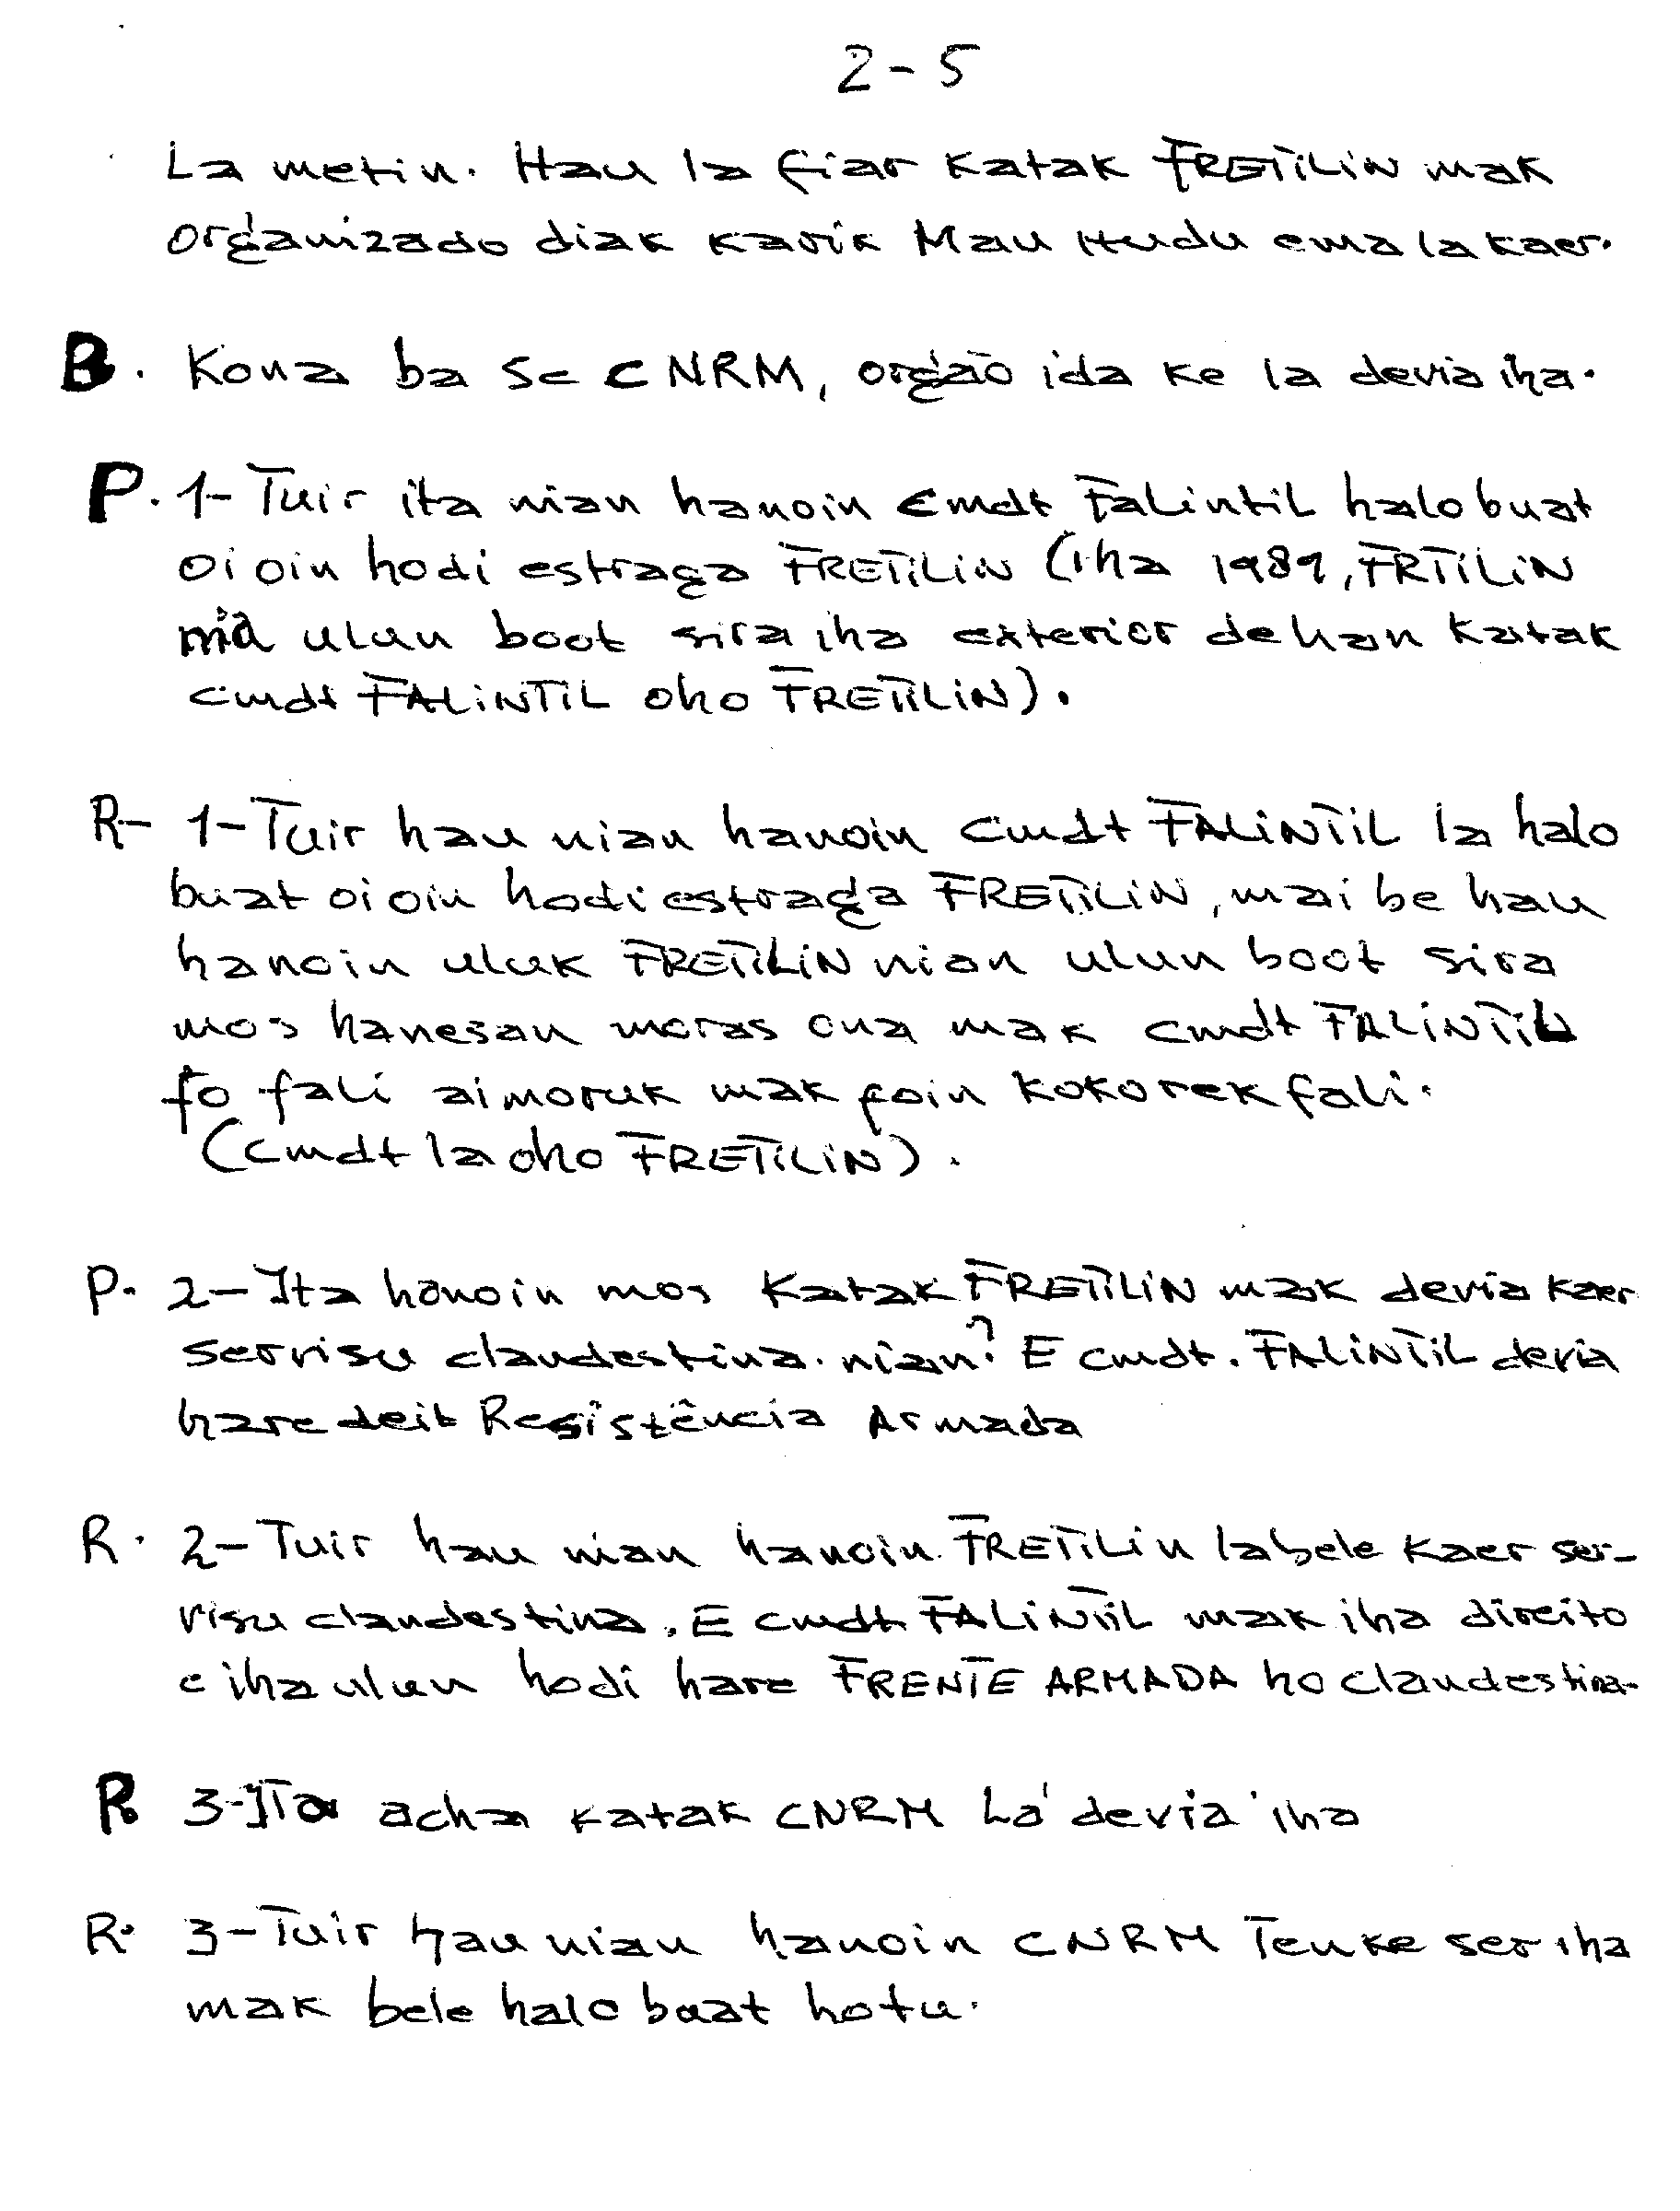 2-5
La metin. Hau la fiar katak FRETILIN mak
organizado diak karik Mau Hudu ema la kaer.
B. Kona ba Sc CNRM, orgão ida ke la devia iha.
P. 1- Tuir ita nian hanoin Cmdt Falintil halo buat
oi oin hodi estraga FRETILIN (iha 1989, FRTILIN
nia ulun boot sira iha exterior dehan katak
cmdt FALINTIL oho FRETILIN).
R- 1- Tuir hau nian hanoin Cmdt FALINTIL la halo
buat oi oin hodi estraga FRETILIN, mai be hau
hanoin uluk FRETILIN nian ulun boot sira
mos hanesan moras ona mak cmdt FALINTIL
fo fali aimoruk mak foin kokorek fali.
(cmdt la oho FRETILIN).
P. 2- Ita hanoin mos Katak FRETILIN mak devia kaer
servisu clandestina. nian? E cmdt. FALINTIL devia
hare deit Resistência Armada
R. 2- Tuir hau nian hanoin FRETILIN labele kaer ser-
visu clandestina. E cmdt FALINTIL mak iha direito
e iha ulun hodi hare FRENTE ARMADA ho clandestina-
P. 3- ITa acha katak CNRM La' devia iha
R. 3- Tuir hau nian hanoin CNRM Tenke ser iha
mak bele halo buat hotu.